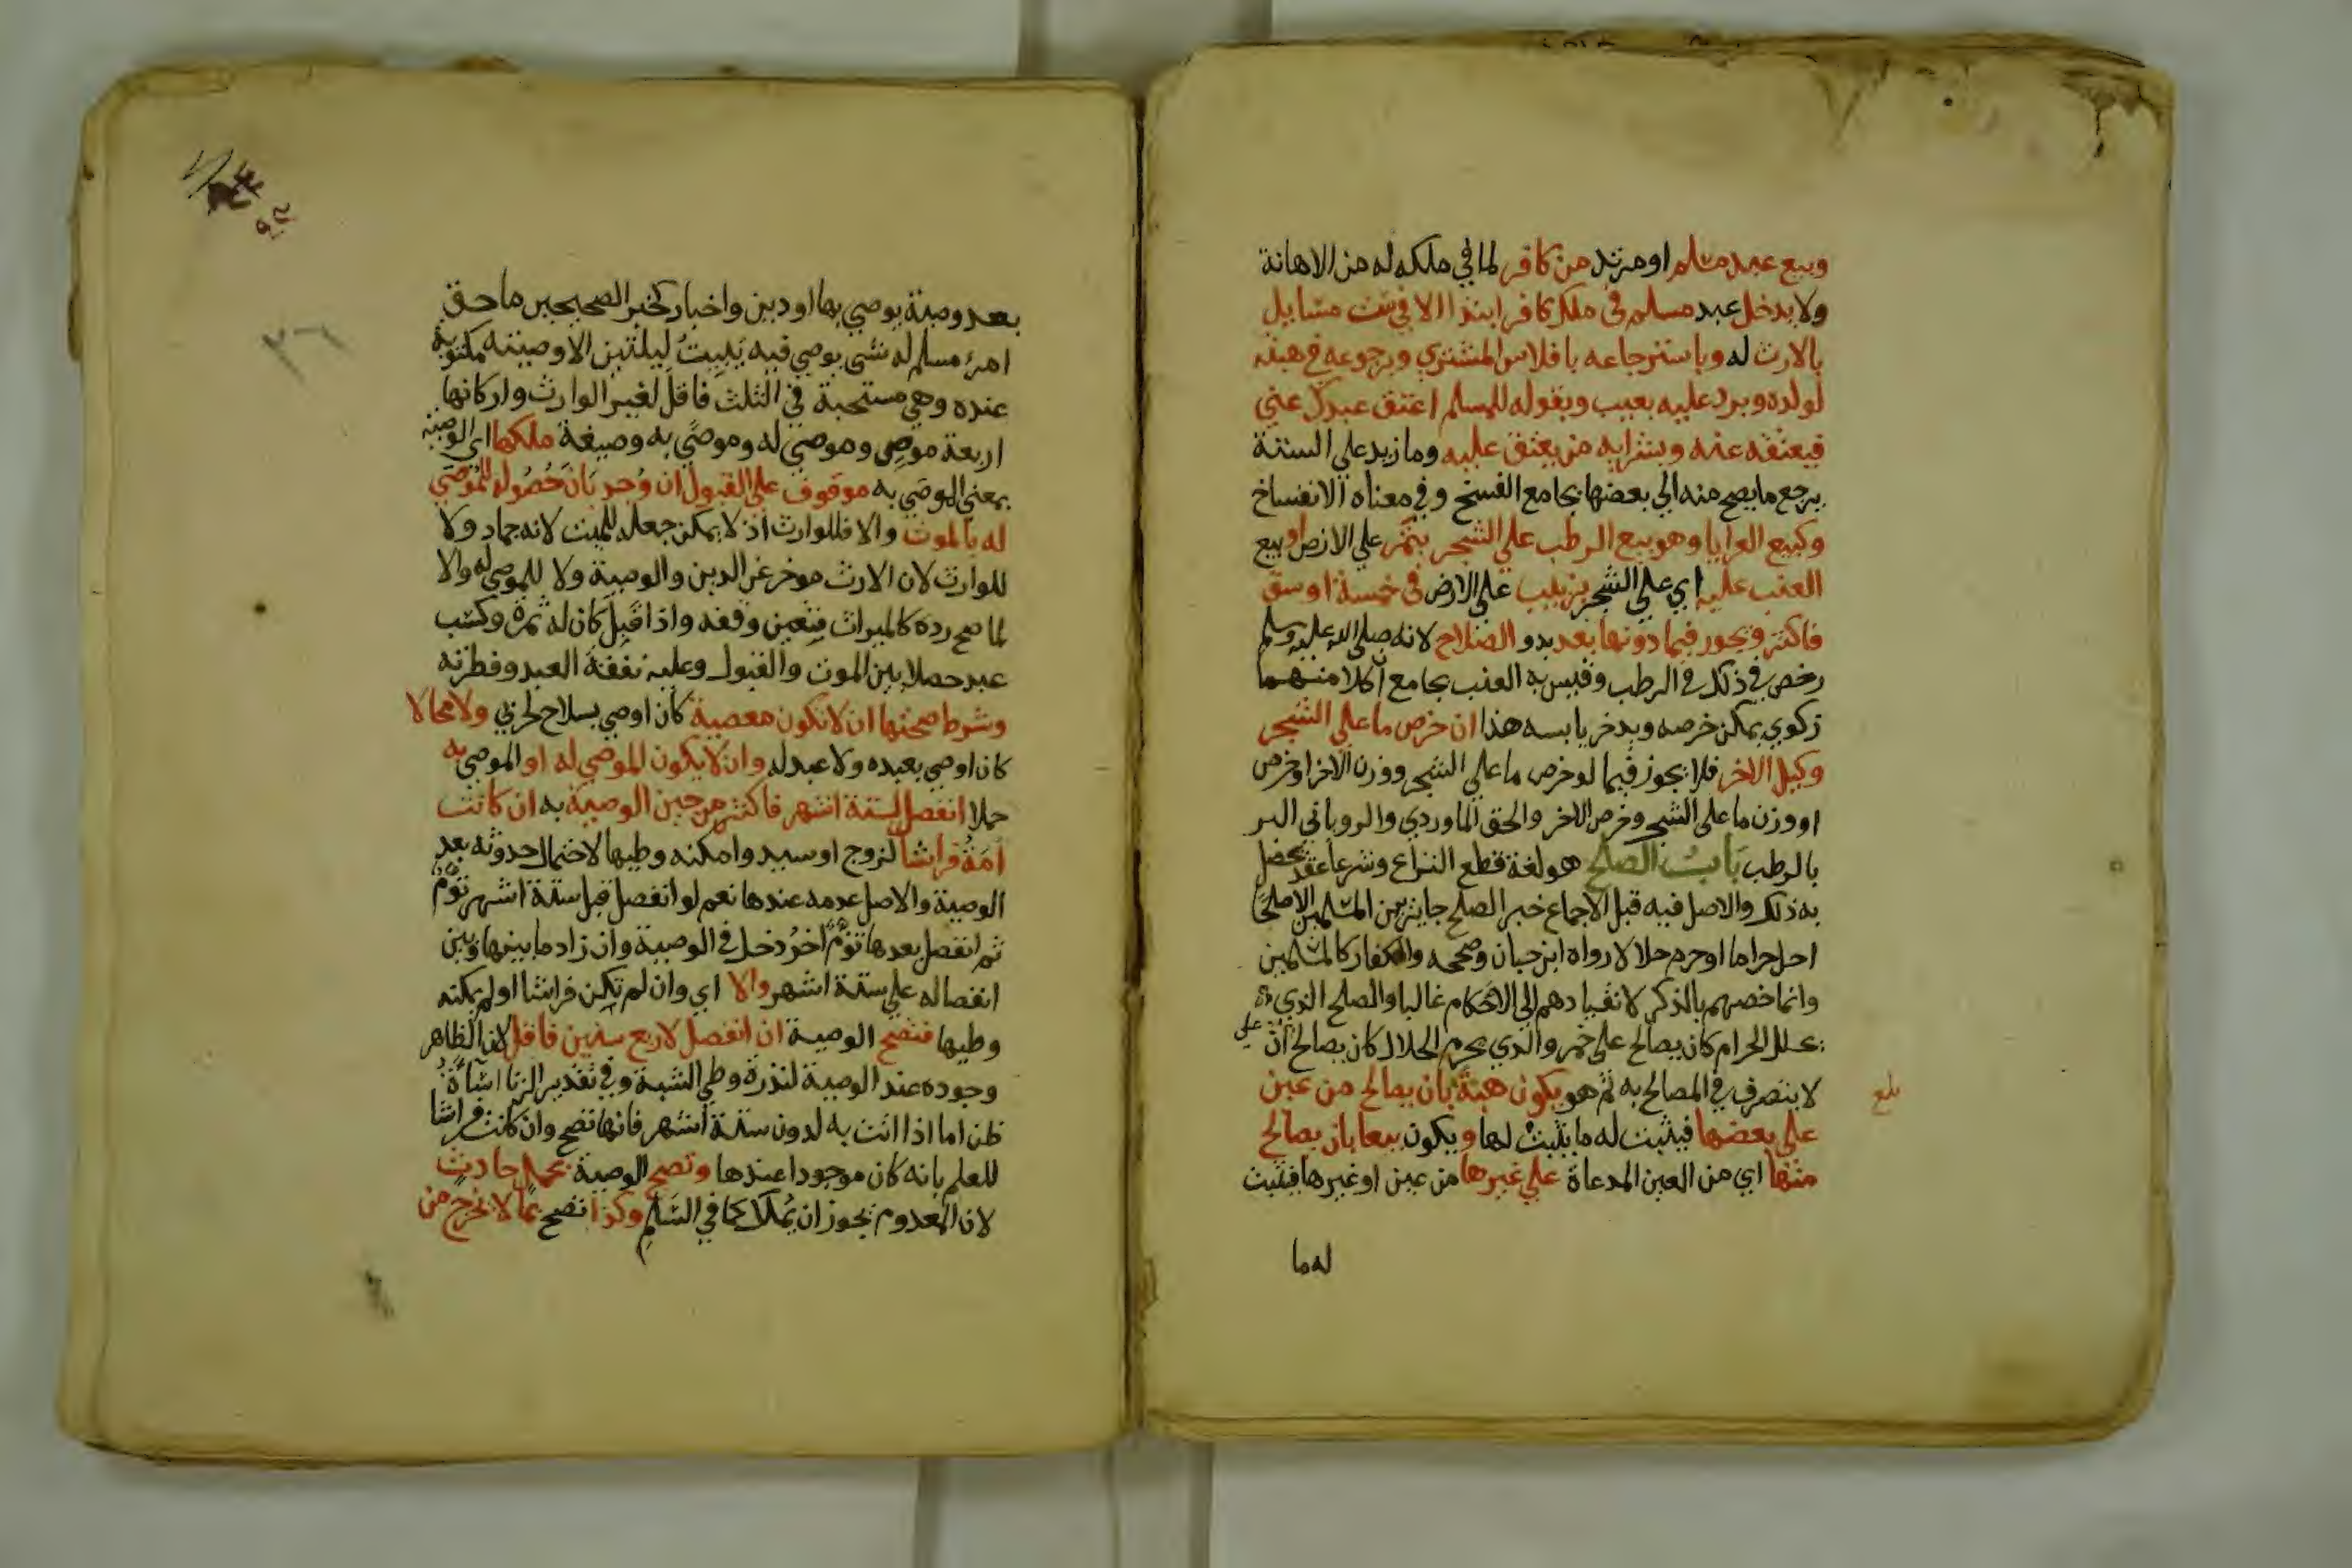 وبيع عبد مسلم او مرتد من كافر لما في ملكه له من الاهانة
ولا يدخل عبد مسلم في ملك كافر ابتدا الا في ست مسايل
بالارث له وباسترجاعه بافلاس المشتري وبرجوعه في هبته
لولده وبرد عليه بعيب وبقوله للمسلم اعتق عبدك عني
فيعتقه عنه وبشرايه من يعتق عليه وما زيد علي الستة
يرجع ما يصح منه الي بعضها بجامع الفسخ وفي معناه الانفساخ
وكبيع العرايا وهو بيع الرطب علي الشجر بتمر علي الارض او بيع
العنب عليه اي علي الشجر بزبيب علي الارض في خمسة اوسق
فاكثر ويجوز فيما دونها بعد بدو الصلاح لانه صلي الله عليه وسلم
رخص في ذلك في الرطب وقيس به العنب بجامع ان كلا منهما
زكوي يمكن خرصه ويدخر يابسه هذا ان خرص ما علي الشجر
وكيل الاخر فلا يجوز فيما لو خرص ما علي الشجر ووزن الاخر او خرص
او وزن ما علي الشجر وخرص الاخر والحق الماوردي والروياني البسر
بالرطب باب الصلح هو لغة قطع النزاع وشرعا عقد يحصل
به ذلك والاصل فيه قبل الاجماع خبر الصلح جايز بين المسلمين الا صلحا
احل حراما او حرم حلالا رواه ابن حبان وصححه والكفار كالمسلمين
وانما خصهم بالذكر لانقيادهم الي الاحكام غالبا والصلح الذي
يحلل الحرام كان يصالح علي خمر والذي يحرم الحلال كان يصالح علي ان
لا يتصرف في المصالح به ثم هو يكون هبة بان يصالح من عين
بلغ
علي بعضها فيثبت له ما يثبت لها ويكون بيعا بان يصالح
منها اي من العين المدعاة علي غيرها من عين او غيرها فيثبت
له ما
بعد وصية يوصي بها او دين واخبار كخبر الصحيحين ما حق
امرئ مسلم له شي يوصي فيه يبيت ليلتين الا وصيته مكتوبة
عنده وهي مستحبة في الثلث فاقل لغير الوارث واركانها
اربعة موص وموصي له وموصي به وصيغة ملكها اي الوصية
بمعني الموصي به موقوف علي القبول ان وجد بان حصوله للموصي
له بالموت والا فللوارث اذ لا يمكن جعله للميت لانه جماد ولا
للوارث لان الارث موخر عن الدين والوصية ولا للموصي له والا
لما صح رده كالميراث فتعين وقفه واذا قبل كان له ثمرة وكسب
عبد حصلا بين الموت والقبول وعليه نفقة العبد وفطرته
وشرط صحتها ان لا تكون معصية كان اوصي بسلاح لحربي ولا محالا
كان اوصي بعبده ولا عبد له وان لا يكون الموصي له او الموصي به
حملا انفصل لستة اشهر فاكثر من حين الوصية به ان كانت
امة فراشا لزوج او سيد وامكنه وطيها لاحتمال حدوثه بعد
الوصية والاصل عدمه عندها نعم لو انفصل قبل ستة اشهر توم
ثم انفصل بعدها توم اخر دخل في الوصية وان زاد ما بينها وبين
انفصاله علي ستة اشهر والا اي وان لم تكن فراشا او لم يمكنه
وطيها فتصح الوصية ان انفصل لاربع سنين فاقل لان الظاهر
وجوده عند الوصية لندرة وطي الشبهة وفي تقدير الزنا اساة
ظن اما اذا اتت به لدون ستة اشهر فانها تصح وان كانت فراشا
للعلم بانه كان موجودا عندها وتصح الوصية بحمل حادث
لان المعدوم يجوز ان يملك كما في السلم وكذا تصح بما لا يخرج من